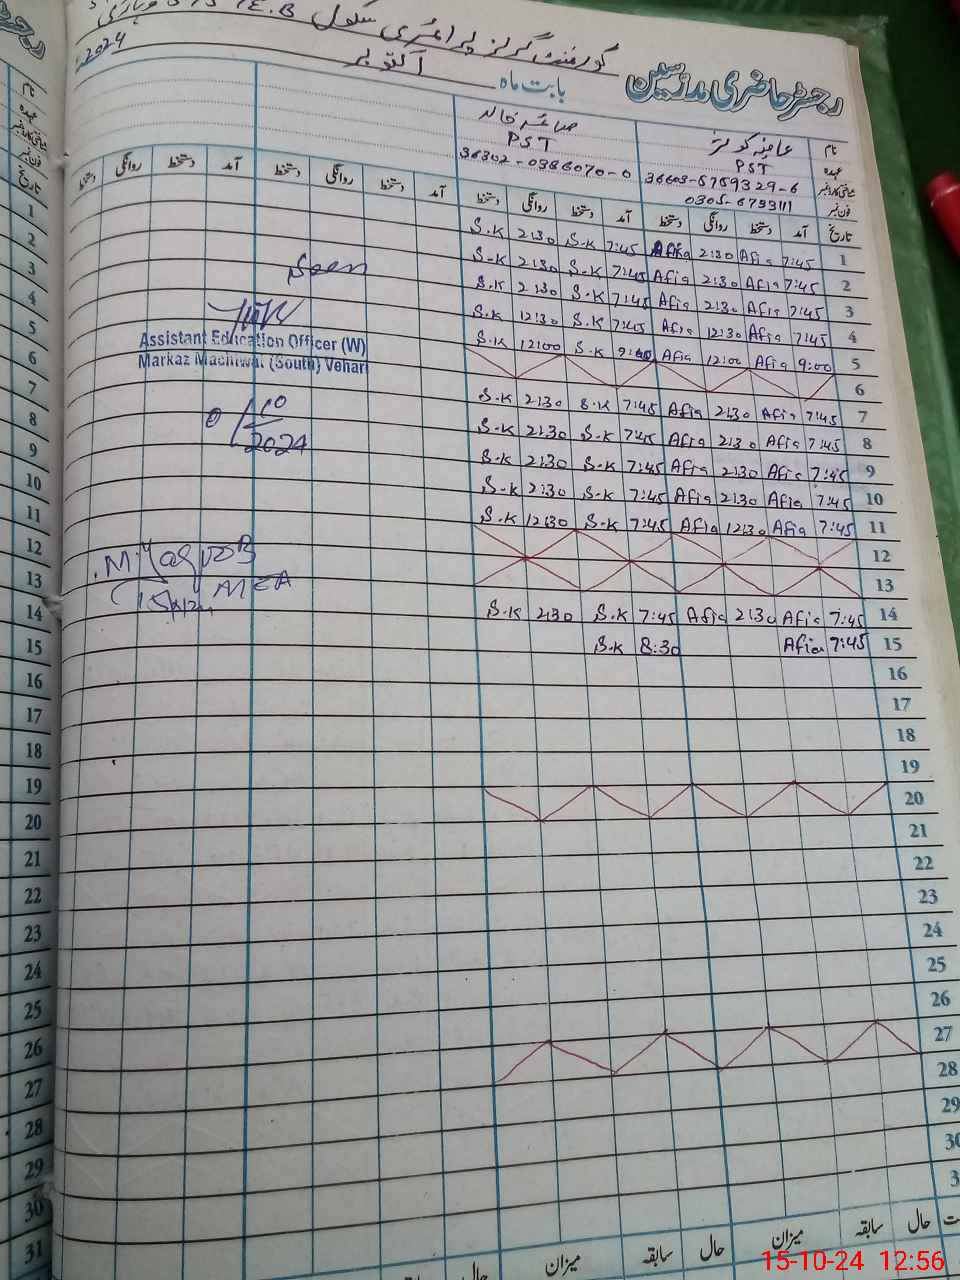 گورنمنٹ گرلز پرائمری سکول
رجسٹر حاضری مدرسین
بابت ماہ اکتوبر 2024
نام
عہدہ PST PST
36603-6759329-6 36302-0386070-0
فون نمبر 0305-6733111
تاریخ آمد دستخط روانگی دستخط آمد دستخط روانگی دستخط آمد دستخط روانگی دستخط آمد دستخط روانگی دستخط
1 7:45 Afia 2:30 Afia 7:45 S.K 2:30 S.K
2 7:45 Afia 2:30 Afia 7:45 S.K 2:30 S.K
3 7:45 Afia 2:30 Afia 7:45 S.K 2:30 S.K
4 7:45 Afia 12:30 Afia 7:45 S.K 12:30 S.K
5 9:00 Afia 12:00 Afia 9:00 S.K 12:00 S.K
6
7 7:45 Afia 2:30 Afia 7:45 S.K 2:30 S.K
8 7:45 Afia 2:30 Afia 7:45 S.K 2:30 S.K
9 7:45 Afia 2:30 Afia 7:45 S.K 2:30 S.K
10 7:45 Afia 2:30 Afia 7:45 S.K 2:30 S.K
11 7:45 Afia 12:30 Afia 7:45 S.K 12:30 S.K
12
13
14 7:45 Afia 2:30 Afia 7:45 S.K 2:30 S.K
15 7:45 Afia 8:30 S.K
16
17
18
19
20
21
22
23
24
25
26
27
28
29
30
3
حال سابقہ میزان حال سابقہ میزان
Seen
Assistant Education Officer (W)
Markaz Machiwal (South) Vehari
10
2024
MEA
1
2
3
4
5
6
7
8
9
10
11
12
13
14
15
16
17
18
19
20
21
22
23
24
25
26
27
28
29
30
31
15-10-24 12:56